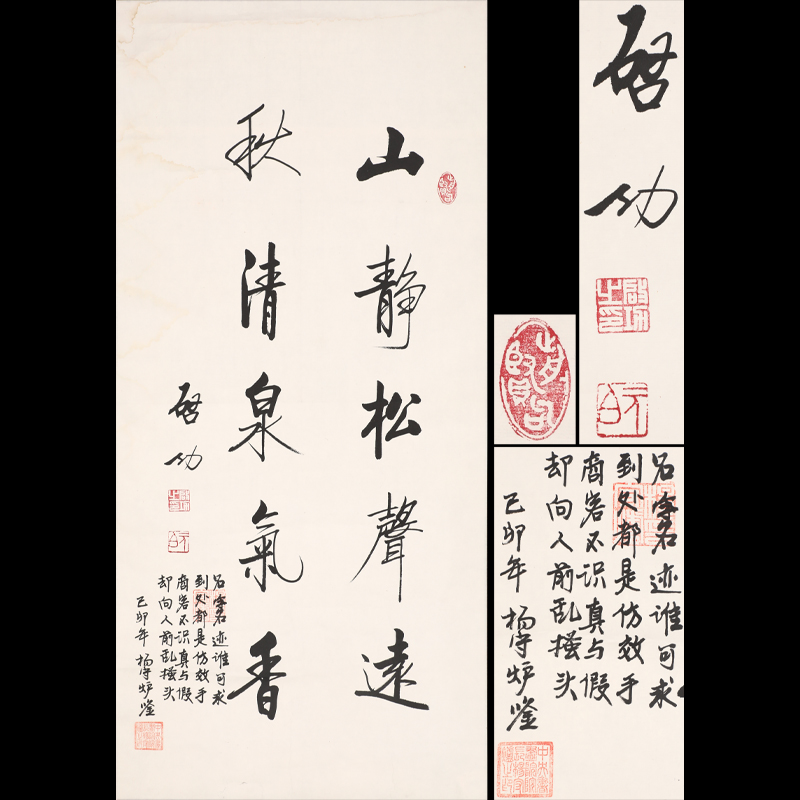 山静松聲遠
秋清泉氣香
啓功
启功之印
元白
名家名迹谁可求
到处都是仿效手
商客不识真与假
却向人前乱搔头
己卯年 杨守炉鉴
啓功
启功之印
元白
名家名迹谁可求
到处都是仿效手
商客不识真与假
却向人前乱搔头
己卯年 杨守炉鉴